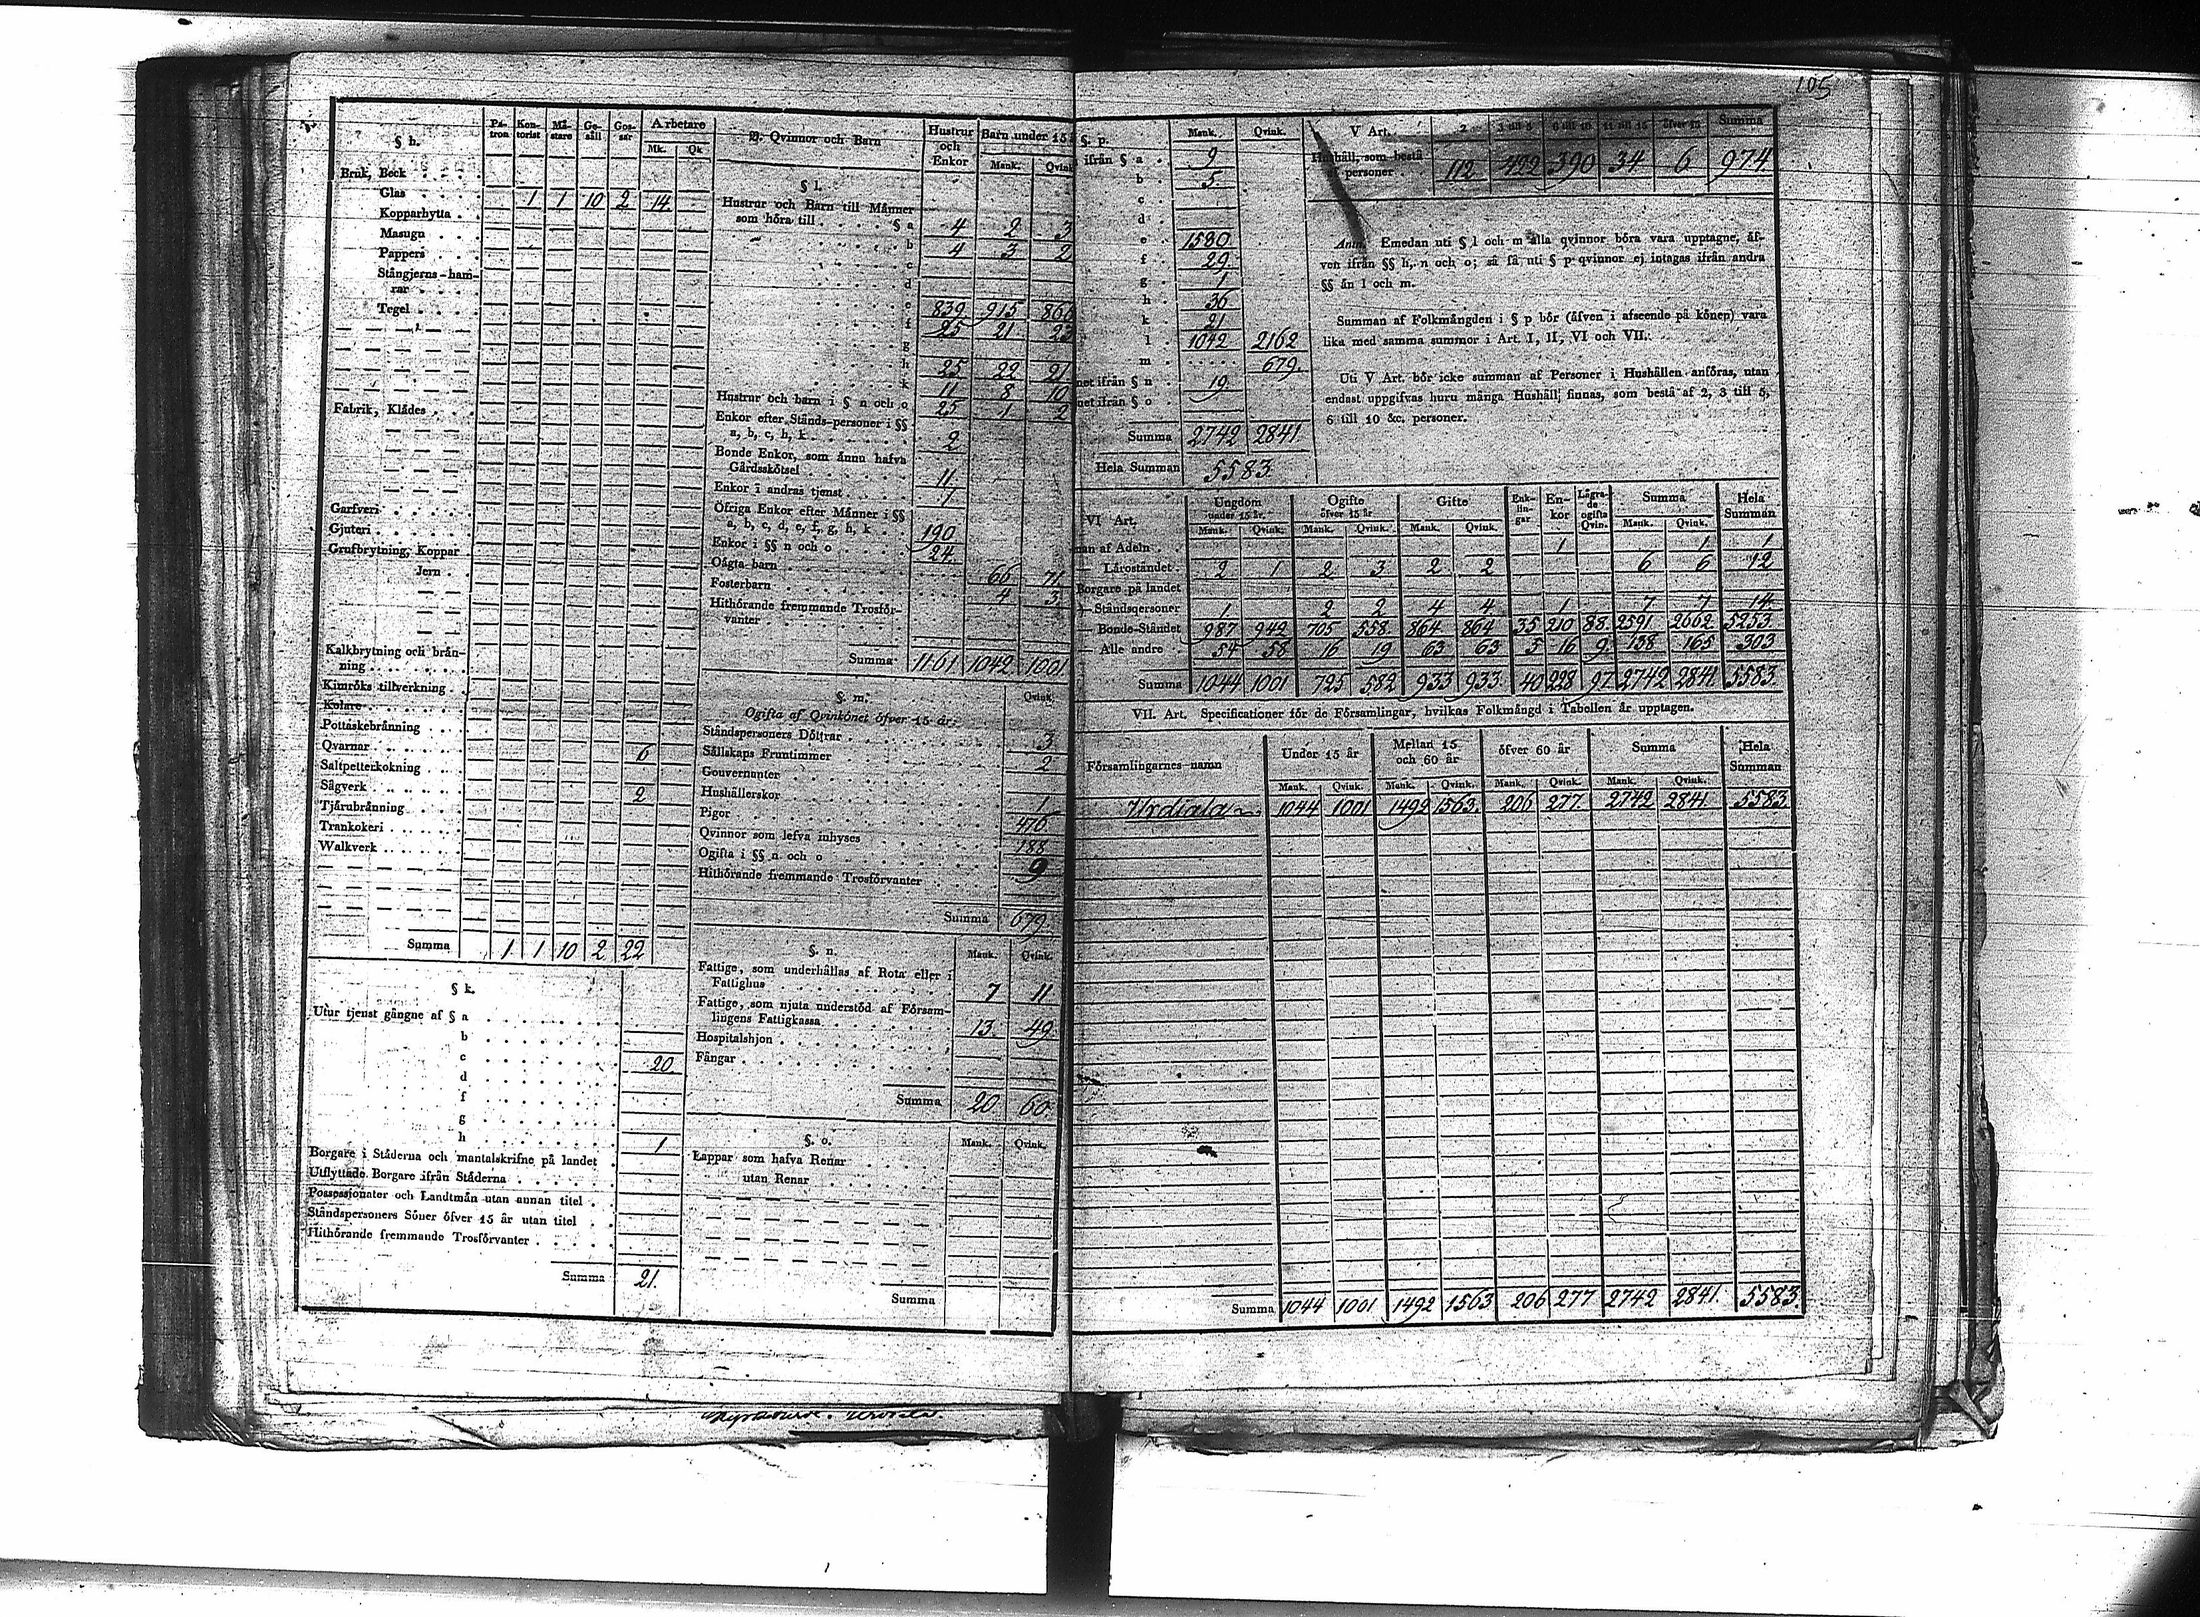 105
§ h.
Pa-tron Kon-torist Må-stare Ge-såll Gos-sar Arbetare
Mk. Qk
Bruk, Beck
Glas 1 1 10 2 14.
Kopparhytta
Masugn
Pappers
Stångjerns-ham-
rar
Tegel
Fabrik, Klådes
Garfveri
Gjuteri
Grufbrytning, Koppar
Jern
Kalkbrytning och brån-
ning
Kimröks tillverkning
Kolare
Pottaskebrånning
Qvarnar 6
Saltpetterkokning
Sågverk 2
Tjårubrånning
Trankokeri
Walkverk
Summa 1 1 10 2 22
§ k.
Utur tjenst gångne af § a
b
c 20.
d
f
g
h 1
Borgare i Ståderna och mantalskrifne på landet
Utflyttade Borgare ifrån Ståderna
Possessionater och Landtmån utan annan titel
Ståndspersoners Söner öfver 15 år utan titel
Hithörande fremmande Trosförvanter
Summa 21.
Qvinnor och Barn
Hustrur och Enkor
Barn under 15
Mank. Qvink
§ l.
Hustrur och Barn till Månner
som höra till § a 4 2 3
b 4 3 2
c
d
e 839 915 860
f 25 21 23
g
h 25 22 21
k 11 8 10
Hustrur och barn i § n och o 25 1 2
Enkor efter Stånds-personer i §§
a, b, c, h, k 2
Bonde Enkor, som ånnu hafva
Gårdsskötsel 11
Enkor i andras tjenst 1
Öfriga Enkor efter Månner i §§
a, b, c, d, e, f, g, h, k 190
Enkor i §§ n och o 24.
Oågta barn 66 71
Fosterbarn 4 3.
Hithörande fremmande Trosför-
vanter
Summa 1161 1042 1001
§. m.
Qvink.
Ogifta af Qvinkönet öfver 15 år.
Ståndspersoners Döttrar 3
Sållskaps Fruntimmer 2
Gouvernanter
Hushållerskor 1
Pigor 476
Qvinnor som lefva inhyses 188
Ogifta i §§ n och o 9
Hithörande fremmande Trosförvanter
Summa 679.
§. n.
Mank. Qvink.
Fattige, som underhållas af Rota eller i
Fattighus 7 11
Fattige, som njuta understöd af Försam-
lingens Fattigkassa 13. 49.
Hospitalshjon
Fångar
Summa 20 60
§. o.
Mank. Qvink.
Lappar som hafva Renar
utan Renar
Summa
§. p.
Mank. Qvink.
ifrån § a 9
b 5.
c
d
e 1580
f 29.
g 1
h 36
k 21
l 1042 2162
m 679.
net ifrån § n 19.
net ifrån § o
Summa 2742 2841.
Hela Summan 5583.
V Art. 2 3 till 5 6 till 10 11 till 15 öfver 15 Summa
Hushåll, som bestå
personer 112 422 390 34 6 974.
Anm. Emedan uti § l och m alla qvinnor böra vara upptagne, åf-
ven ifrån §§ h, n och o; så få uti § p qvinnor ej intagas ifrån andra
§§ ån l och m.
Summan af Folkmångden i § p bör (åfven i afseende på könen) vara
lika med samma summor i Art. I, II, VI och VII.
Uti V Art. bör icke summan af Personer i Hushållen anföras, utan
endast uppgifvas huru många Hushåll finnas, som bestå af 2, 3 till 5,
6 till 10 &c. personer.
VI Art.
Ungdom under 15 år. Ogifte öfver 15 år Gifte Enk-lin-gar En-kor Lågra-de ogifta Qvin. Summa Hela Summan
Mank. Qvink. Mank. Qvink. Mank. Qvink. Mank. Qvink.
nan af Adeln 1 1 1
— Låroståndet 2 1 2 3 2 2 6 6 12
Borgare på landet
— Ståndspersoner 1 2 2 4 4 1 7 7 14.
— Bonde-Ståndet 987 942 705 558 864 864 35 210 88. 2591 2662 5253
— Alle andre 54 58 16 19 63 63 5 16 9. 138 165 303
Summa 1044 1001 725 582 933 933 40 228 97 2742 2841 5583.
VII. Art. Specificationer för de Församlingar, hvilkas Folkmångd i Tabellen år upptagen.
Församlingarnes namn Under 15 år Mellan 15 och 60 år öfver 60 år Summa Hela Summan
Mank. Qvink. Mank. Qvink. Mank. Qvink. Mank. Qvink.
Urdiala 1044 1001 1492 1563. 206 277. 2742 2841. 5583
Summa 1044 1001 1492 1563 206 277 2742 2841. 5583.